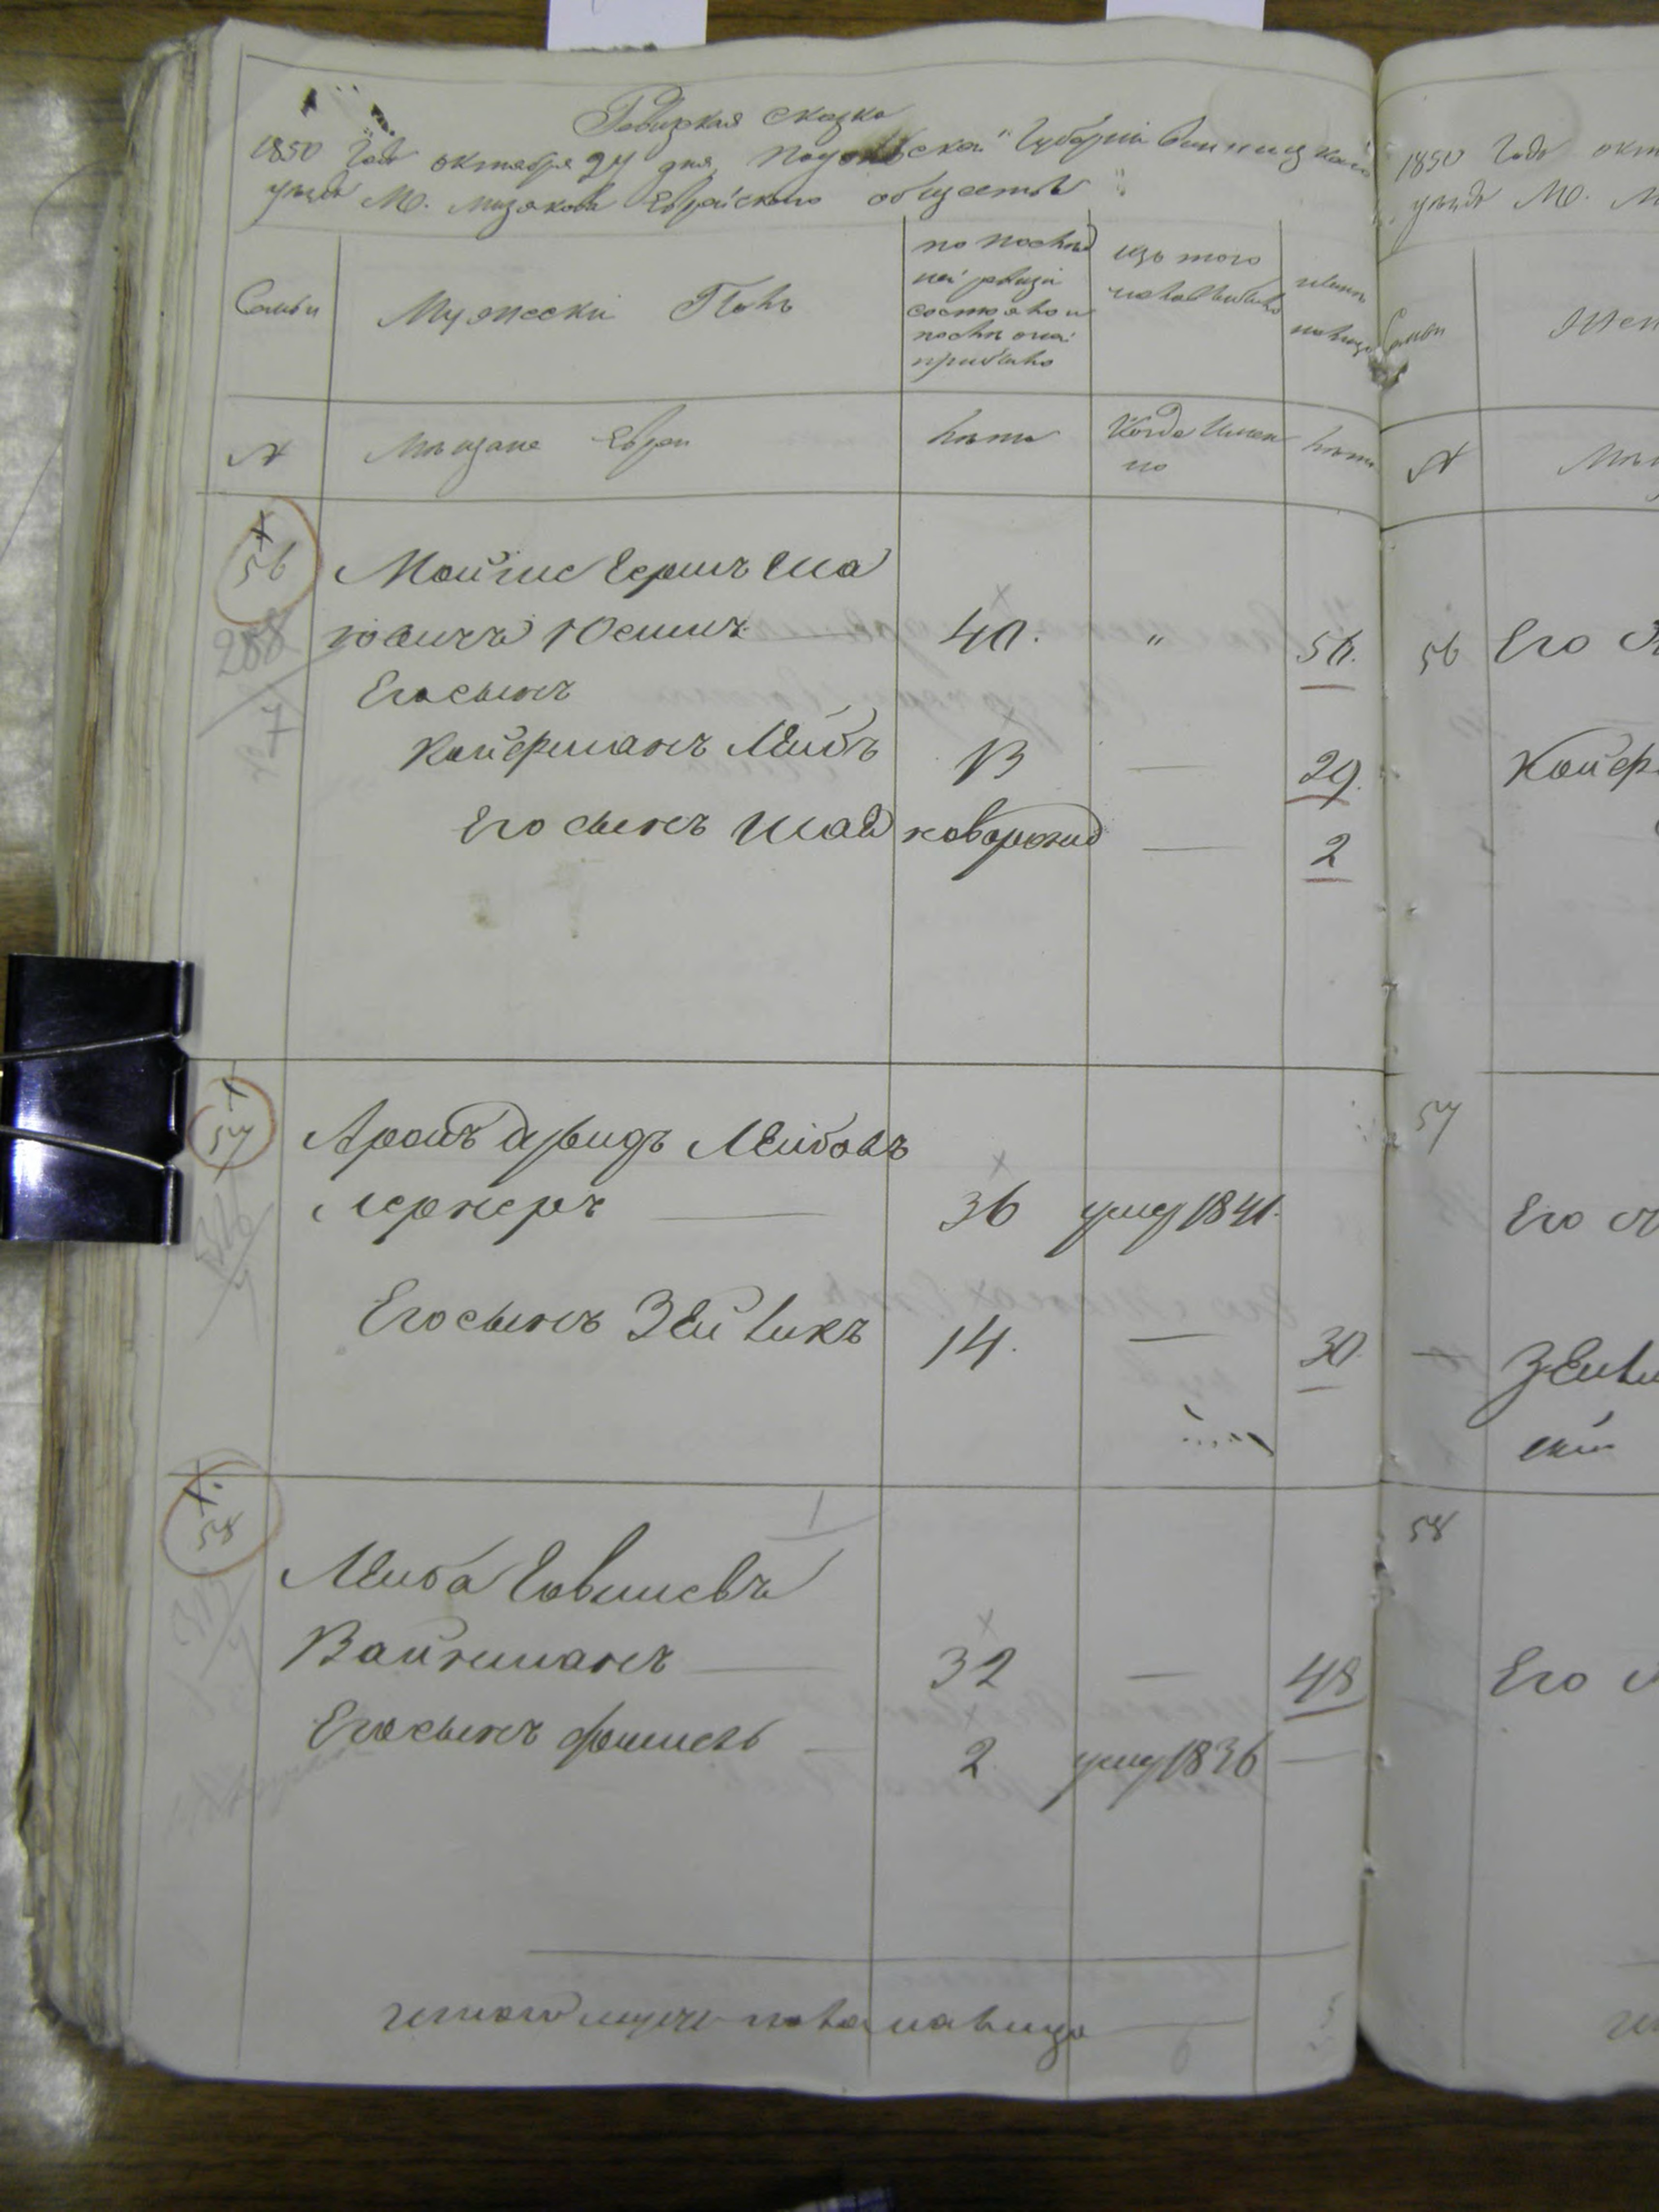 Ревизкая сказка
1850 Года октября 27 дня, Подольской Губернии Винницкаго
уезда М. Мизякова Еврейского общества
Семьи
Мужески Полъ
по послед
ней ревизи
состояло и
после оной
прибыло
изъ того
числа выбыло
ныне
налицо
№
Мещане Евреи
лета
Когда Имен
но
лета
56
Мойше Гершъ Шл
ювичъ Юсимъ
40.
"
56.
Его сынъ
Койфманъ Лейбъ
13
—
29.
Его сынъ Шая
новорожд
—
2
57
Аронъ Давидъ Лейбовъ
Лернеръ —
36
умер 1841.
Его сынъ Зейликъ
14.
—
30.
58
Лейба Евшиевъ
Вайнманъ —
32
—
48
Его сынъ Фишель —
2
умер 1836
—
итого муже пола налицо
5
1850 Года окт
уезда М. М
Семьи
Жен
№
Ме
56
Его
Койф
57
Его
—
Зейли
58
Его